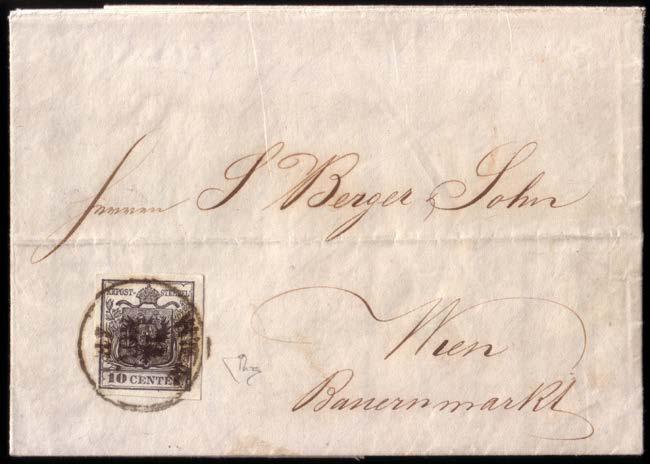 Herren S Berger & Sohn
KKPOST-STEMPEL
10 CENTES
Wien
Bauernmarkt